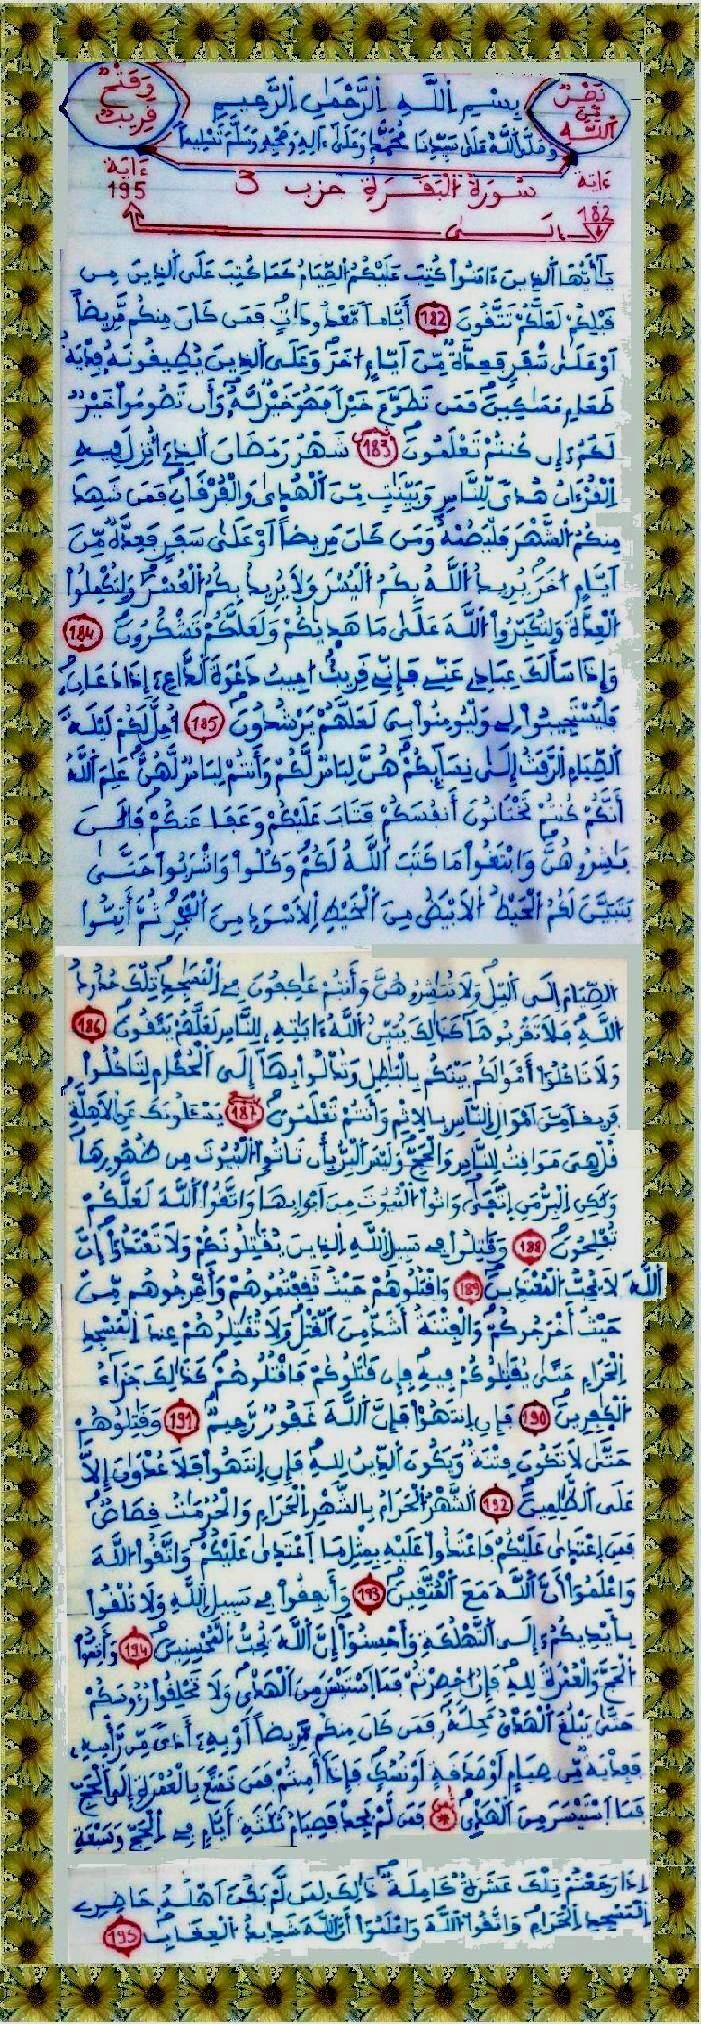 نصر من الله
وفتح قريب
بسم الله الرحمن الرحيم
وصلى الله على سيدنا محمد وعلى ءاله وصحبه وسلم تسليما
ءاية 182
إلى
ءاية 195
سورة البقرة حزب 3
يَٰأيها الذين ءامنوا كتب عليكم الصيام كما كتب على الذين من
قبلكم لعلكم تتقون 182 أياما معدودات فمن كان منكم مريضا
أو على سفر فعدة من أيام اخر وعلى الذين يطيقونه فدية
طعام مساكين فمن تطوع خيرا فهو خير له وأن تصوموا خير
لكم إن كنتم تعلمون 183 شهر رمضان الذي أنزل فيه
القرءان هدى للناس وبينات من الهدى والفرقان فمن شهد
منكم الشهر فليصمه ومن كان مريضا أو على سفر فعدة من
أيام اخر يريد الله بكم اليسر ولا يريد بكم العسر ولتكملوا
العدة ولتكبروا الله على ما هديكم ولعلكم تشكرون 184
وإذا سألك عبادي عني فإني قريب أجيب دعوة الداع إذا دعان
فليستجيبوا لي وليومنوا بي لعلهم يرشدون 185 أحل لكم ليلة
الصيام الرفث إلى نسائكم هن لباس لكم وأنتم لباس لهن علم الله
أنكم كنتم تختانون أنفسكم فتاب عليكم وعفا عنكم فالن
باشروهن وابتغوا ما كتب الله لكم وكلوا واشربوا حتى
يتبين لكم الخيط الابيض من الخيط الاسود من الفجر ثم أتموا
الصيام إلى اليل ولا تباشروهن وأنتم عاكفون في المسجد تلك حدود
الله فلا تقربوها كذالك يبين الله ءاياته للناس لعلهم يتقون 186
ولا تاكلوا أموالكم بينكم بالباطل وتدلوا بها إلى الحكام لتاكلوا
فريقا من أموال الناس بالاثم وأنتم تعلمون 187 يسئلونك عن الاهلة
قل هي مواقيت للناس والحج وليس البر بأن تاتوا البيوت من ظهورها
ولكن البر من إتقى واتوا البيوت من أبوابها واتقوا الله لعلكم
تفلحون 188 وقاتلوا في سبيل الله الذين يقاتلونكم ولا تعتدوا إن
الله لا يحب المعتدين 189 واقتلوهم حيث ثقفتموهم وأخرجوهم من
حيث أخرجوكم والفتنة أشد من القتل ولا تقاتلوهم عند المسجد
الحرام حتى يقاتلوكم فيه فإن قاتلوكم فاقتلوهم كذالك جزاء
الكافرين 190 فإن إنتهوا فإن الله غفور رحيم 191 وقاتلوهم
حتى لا تكون فتنة ويكون الدين لله فإن إنتهوا فلا عدوان إلا
على الظالمين 192 الشهر الحرام بالشهر الحرام والحرمات قصاص
فمن إعتدى عليكم فاعتدوا عليه بمثل ما اعتدى عليكم واتقوا الله
واعلموا أن الله مع المتقين 193 وأنفقوا في سبيل الله ولا تلقوا
بأيديكم إلى التهلكة وأحسنوا إن الله يحب المحسنين 194 وأتموا
الحج والعمرة لله فإن أحصرتم فما استيسر من الهدي ولا تحلقوا رءوسكم
حتى يبلغ الهدي محله فمن كان منكم مريضا أو به أذى من رأسه
ففدية من صيام أو صدقة أو نسك فإذا أمنتم فمن تمتع بالعمرة إلى الحج
فما استيسر من الهدي فمن لم يجد فصيام ثلاثة أيام في الحج وسبعة
إذا رجعتم تلك عشرة كاملة ذالك لمن لم يكن أهله حاضري
المسجد الحرام واتقوا الله واعلموا أن الله شديد العقاب 195